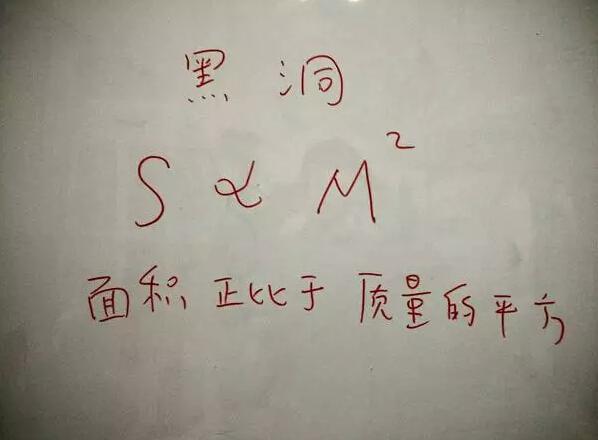 黑洞
S ∝ M²
面积正比于质量的平方